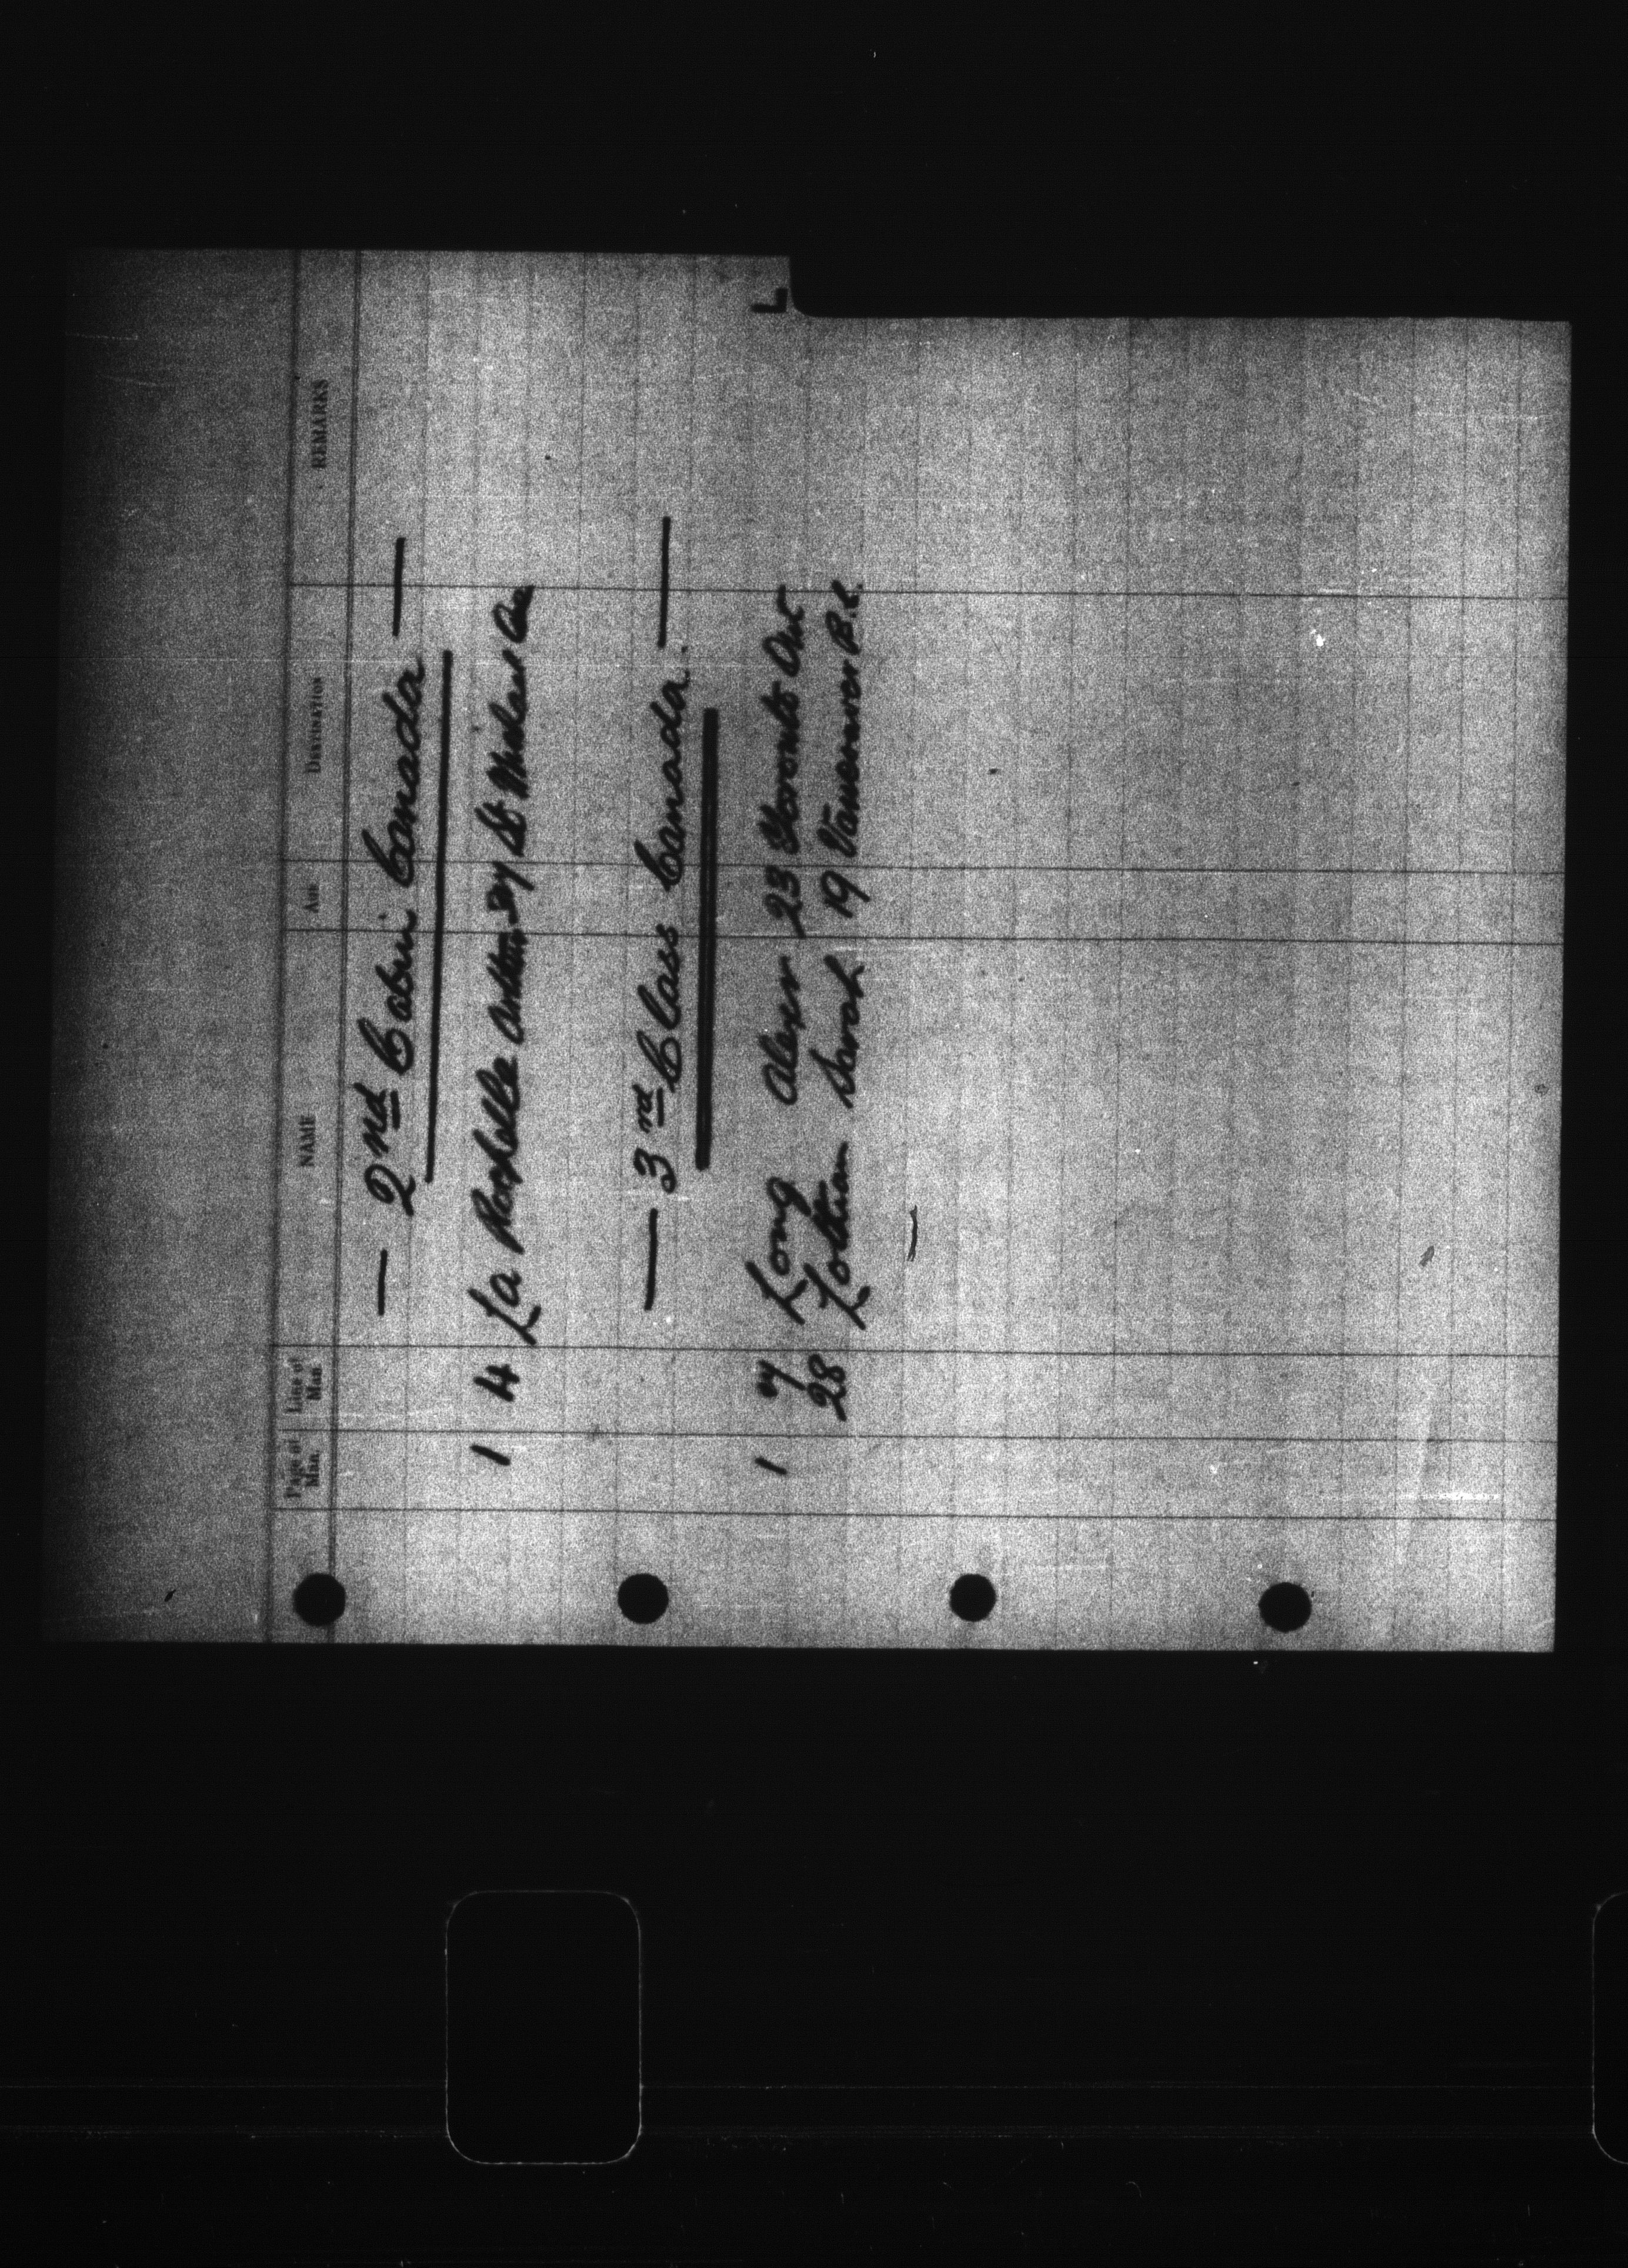 L
Page of Man. Line of Man NAME AGE DESTINATION REMARKS
— 2nd Cabin Canada —
1 4 La Rochelle 37 St Michael Que
— 3rd Class Canada. —
1 7 Long Alexr 23 Toronto Ont
28 Lothian Sarah 19 Vancouver B.C.